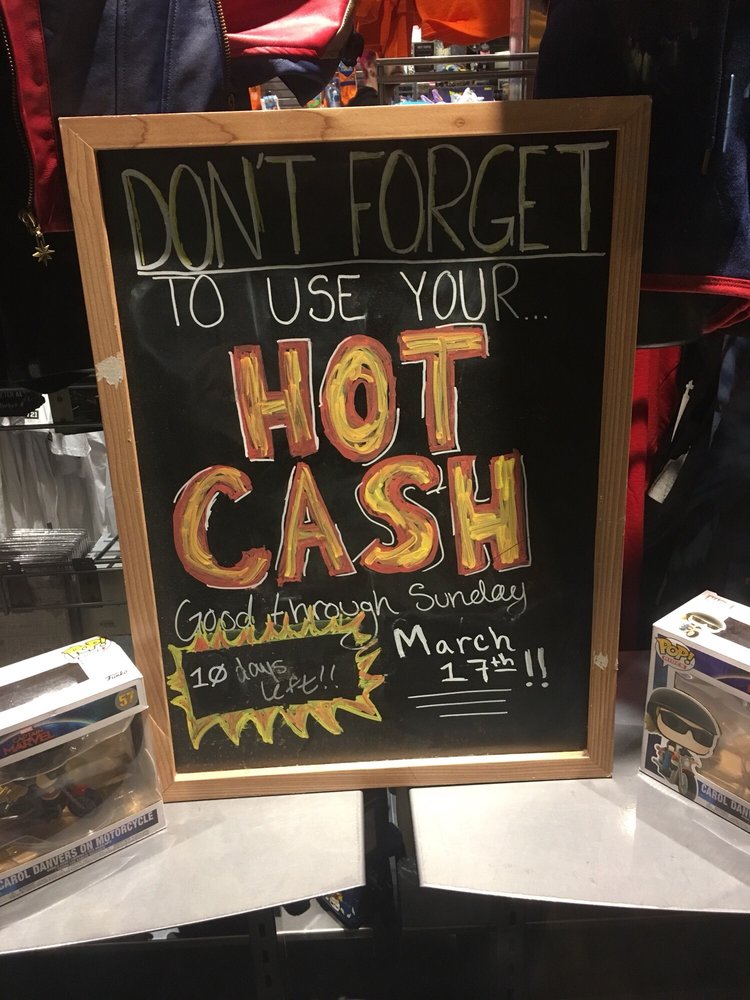 DON'T FORGET
TO USE YOUR...
HOT
CASH
Good through Sunday
March
17th!!
10 days
left!!
POP!
Funko
57
MARVEL
CAROL DANVERS ON MOTORCYCLE
POP!
CAROL DANVERS